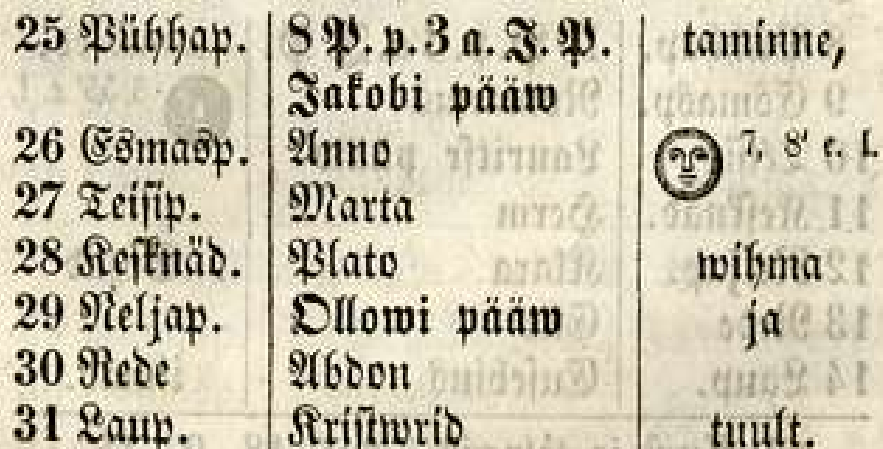 25 Pühhap. 8 P. p. 3 a. J. P. taminne,
Jakobi pääw
26 Esmasp. Anno 7, 8' e. l.
27 Teisip. Marta
28 Kesknäd. Plato wihma
29 Neljap. Ollowi pääw ja
30 Rede Abdon
31 Laup. Kristwrid tuult.